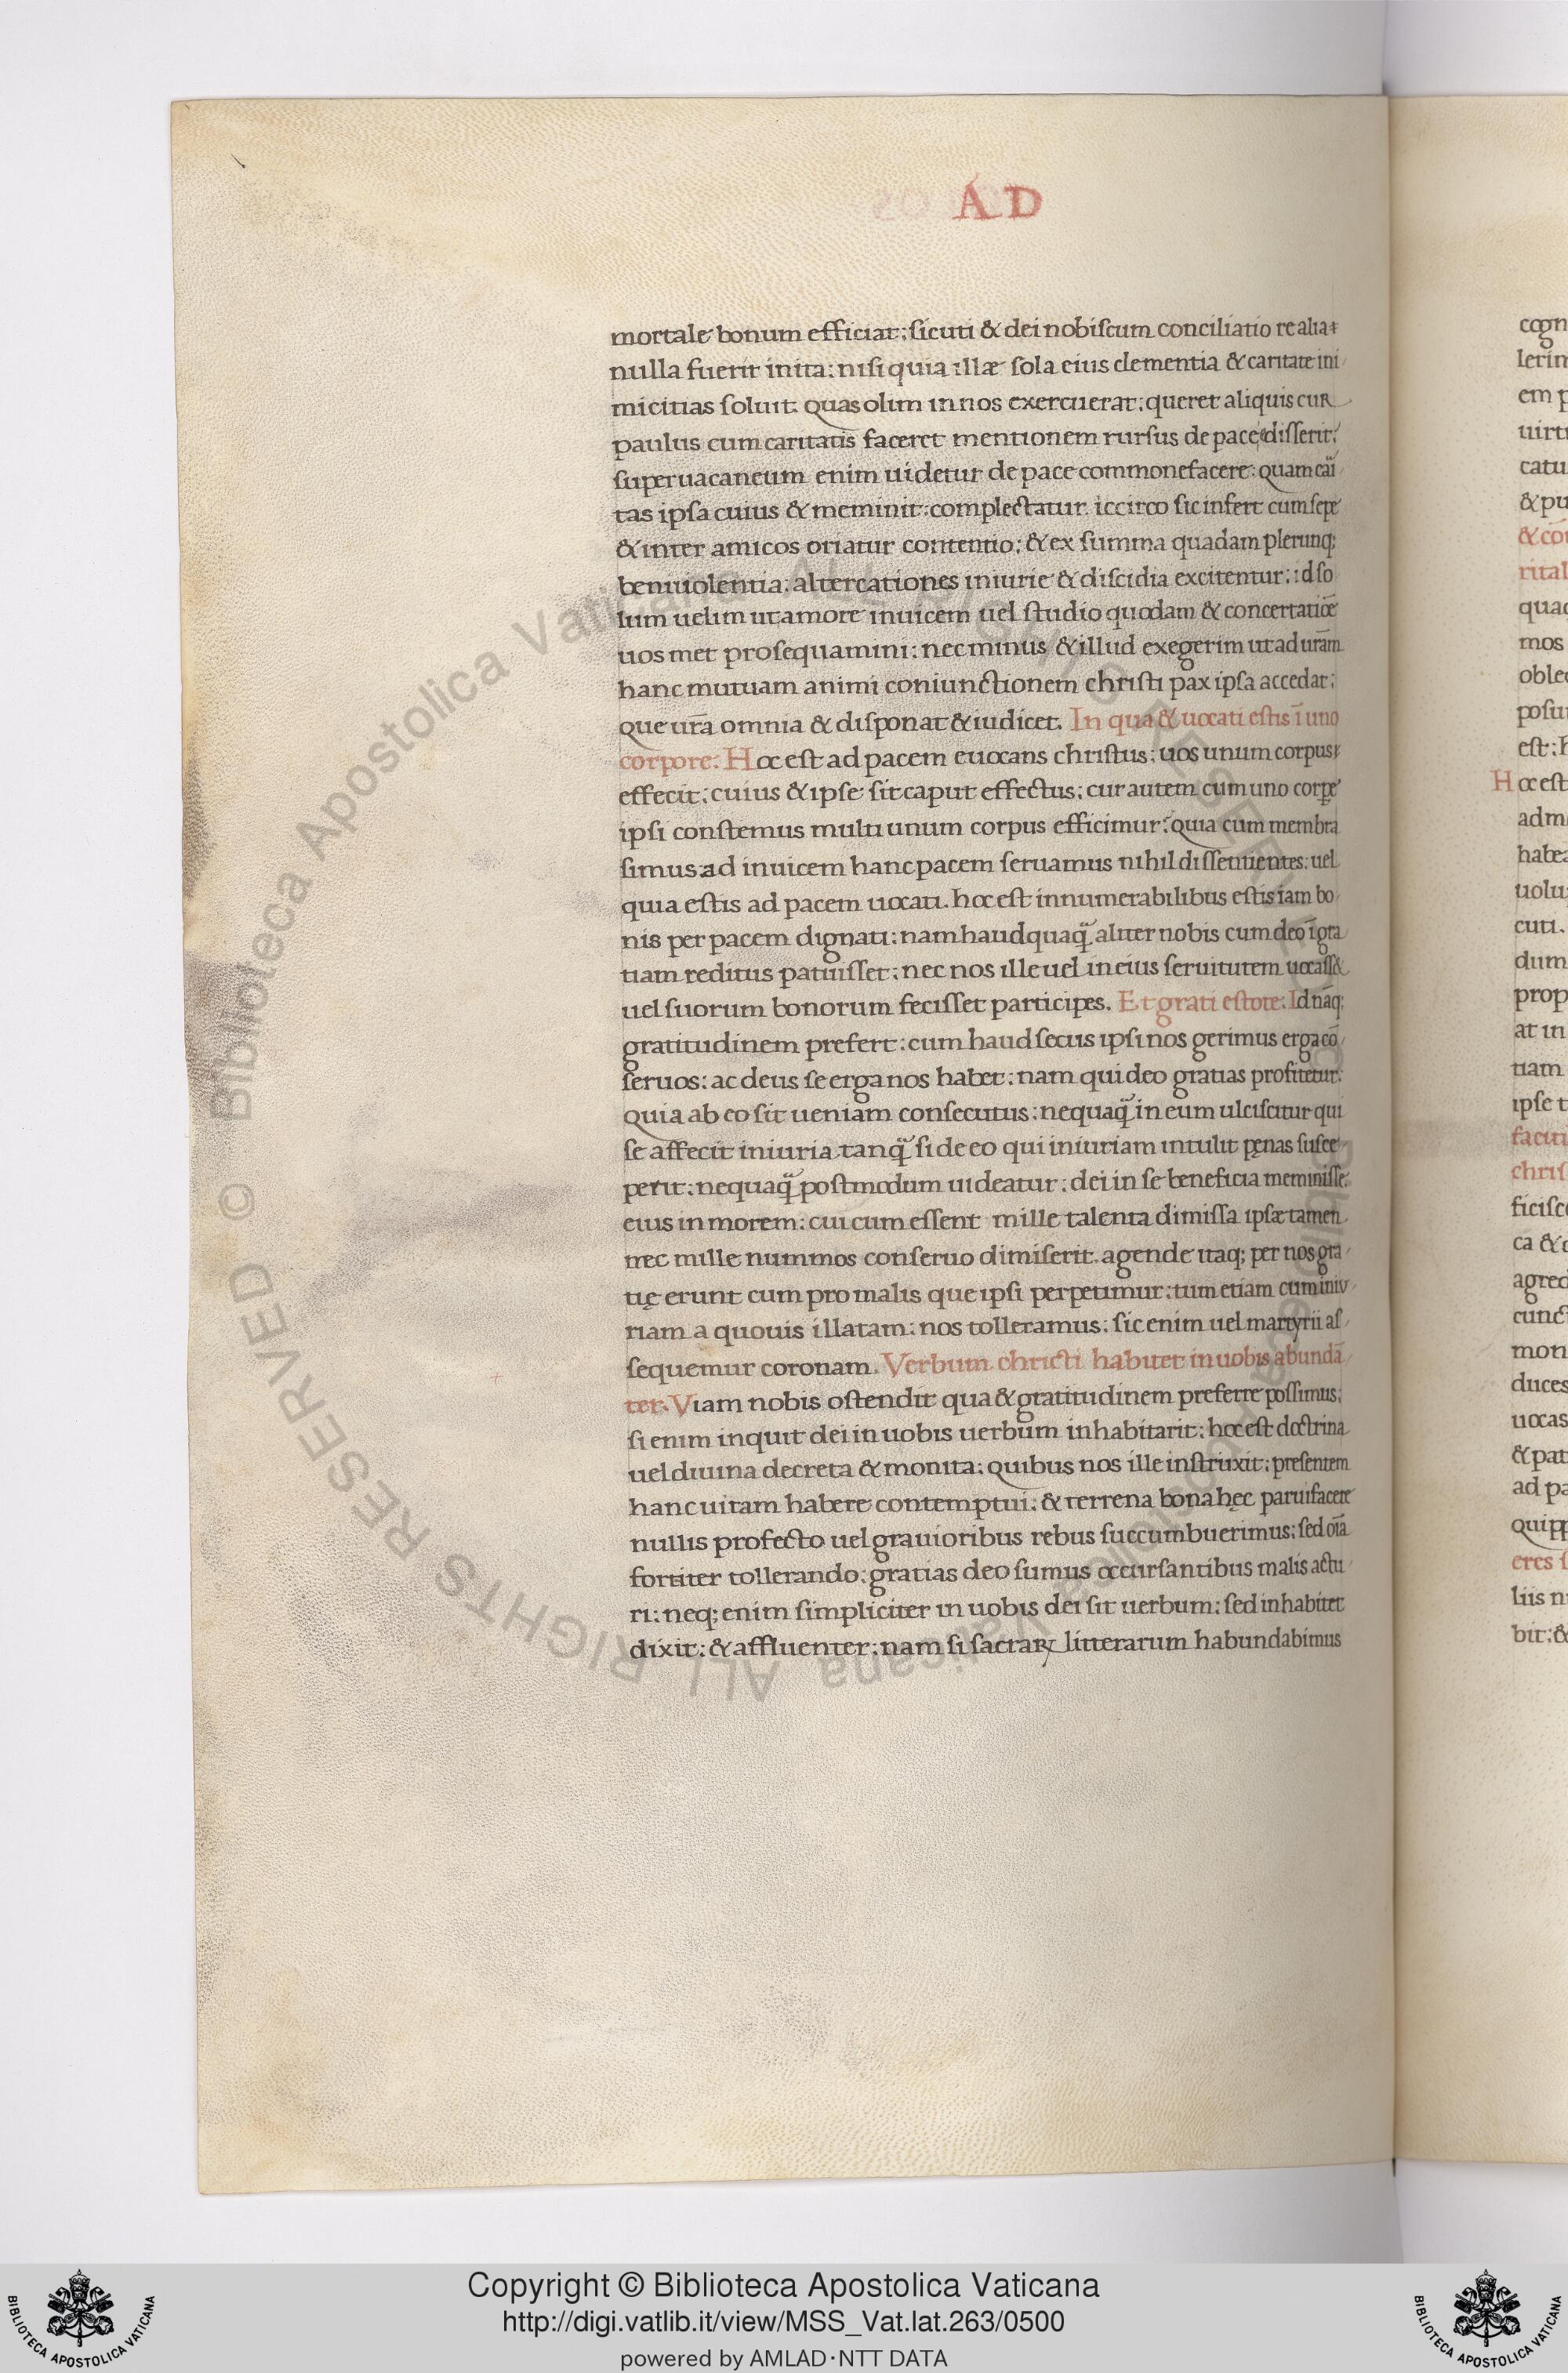 A D
mortale bonum efficiat: sicuti & dei nobiscum conciliatio re alia
nulla fuerit inita: nisi quia illæ sola eius clementia & caritate ini
micitias soluit. quas olim in nos exercuerat: queret aliquis cur
paulus cum caritatis faceret mentionem rursus de pace disserit:
superuacaneum enim uidetur de pace commonefacere: quam
tas ipsa cuius & meminit: complectatur. iccirco sic infert cum sepe
& inter amicos oriatur contentio: & ex summa quadam plerunq;
beniuolentia: altercationes iniurie & discidia excitentur: id so
lum uelim ut amore inuicem uel studio quodam & concertatiōe
uos met prosequamini: nec minus & illud exegerim ut ad urām
hanc mutuam animi coniunctionem christi pax ipsa accedat:
que urā omnia & disponat & iudicet. In qua & uocati estis ī uno
corpore: Hoc est ad pacem euocans christus: uos unum corpus
effecit: cuius & ipse sit caput effectus: cur autem cum uno corpe
ipsi constemus multi unum corpus efficimur: quia cum membra
simus ad inuicem hanc pacem seruamus nihil dissentientes: uel
quia estis ad pacem uocati. hoc est innumerabilibus estis iam bo
nis per pacem dignati: nam haudquaq̃ aliter nobis cum deo ī gra
tiam reditus patuisset: nec nos ille uel in eius seruitutem uocass&
uel suorum bonorum fecisset participes. Et grati estote: Id nāq;
gratitudinem prefert: cum haud secus ipsi nos gerimus erga cō
seruos: ac deus se erga nos habet: nam qui deo gratias profitetur:
quia ab eo sit ueniam consecutus: nequaq̃ in eum ulciscitur qui
se affecit iniuria tanq̃ si de eo qui iniuriam intulit pęnas susce
perit: nequaq̃ postmodum uideatur: dei in se beneficia meminisse:
eius in morem: cui cum essent mille talenta dimissa ipsæ tamen
nec mille nummos conseruo dimiserit. agende itaq; per nos gra
tię erunt cum pro malis que ipsi perpetimur: tum etiam cum iniu
riam a quouis illatam: nos tolleramus: sic enim uel martyrii as
sequemur coronam. Verbum christi habitet in uobis abundā
ter. Viam nobis ostendit qua & gratitudinem preferre possimus:
si enim inquit dei in uobis uerbum inhabitarit: hoc est doctrina
uel diuina decreta & monita: quibus nos ille instruxit: presentem
hanc uitam habere contemptui: & terrena bona hęc paruifacere
nullis profecto uel grauioribus rebus succumbuerimus: sed oīa
fortiter tollerando: gratias deo sumus occursantibus malis actu
ri: neq; enim simpliciter in uobis dei sit uerbum: sed inhabitet
dixit: & affluenter: nam si sacraꝝ litterarum habundabimus
cogn
lerim
em p
uirtu
catu
& pu
& cō
rital
quac
mos
oblec
posu
est: h
Hoc est
adm
habea
uolu
cuti.
dum
prop
at in
tiam
ipse t
faciti
chris
ficisc
ca & c
agred
cunct
mon
duces
uocas
& pat
ad pa
quipp
eres s
liis n
bit: &
© Biblioteca Apostolica Vaticana ALL RIGHTS RESERVED © Biblioteca Apostolica Vaticana ALL RIGHTS RESERVED
Copyright © Biblioteca Apostolica Vaticana
http://digi.vatlib.it/view/MSS_Vat.lat.263/0500
powered by AMLAD·NTT DATA
BIBLIOTECA APOSTOLICA VATICANA
BIBLIOTECA APOSTOLICA VATICANA